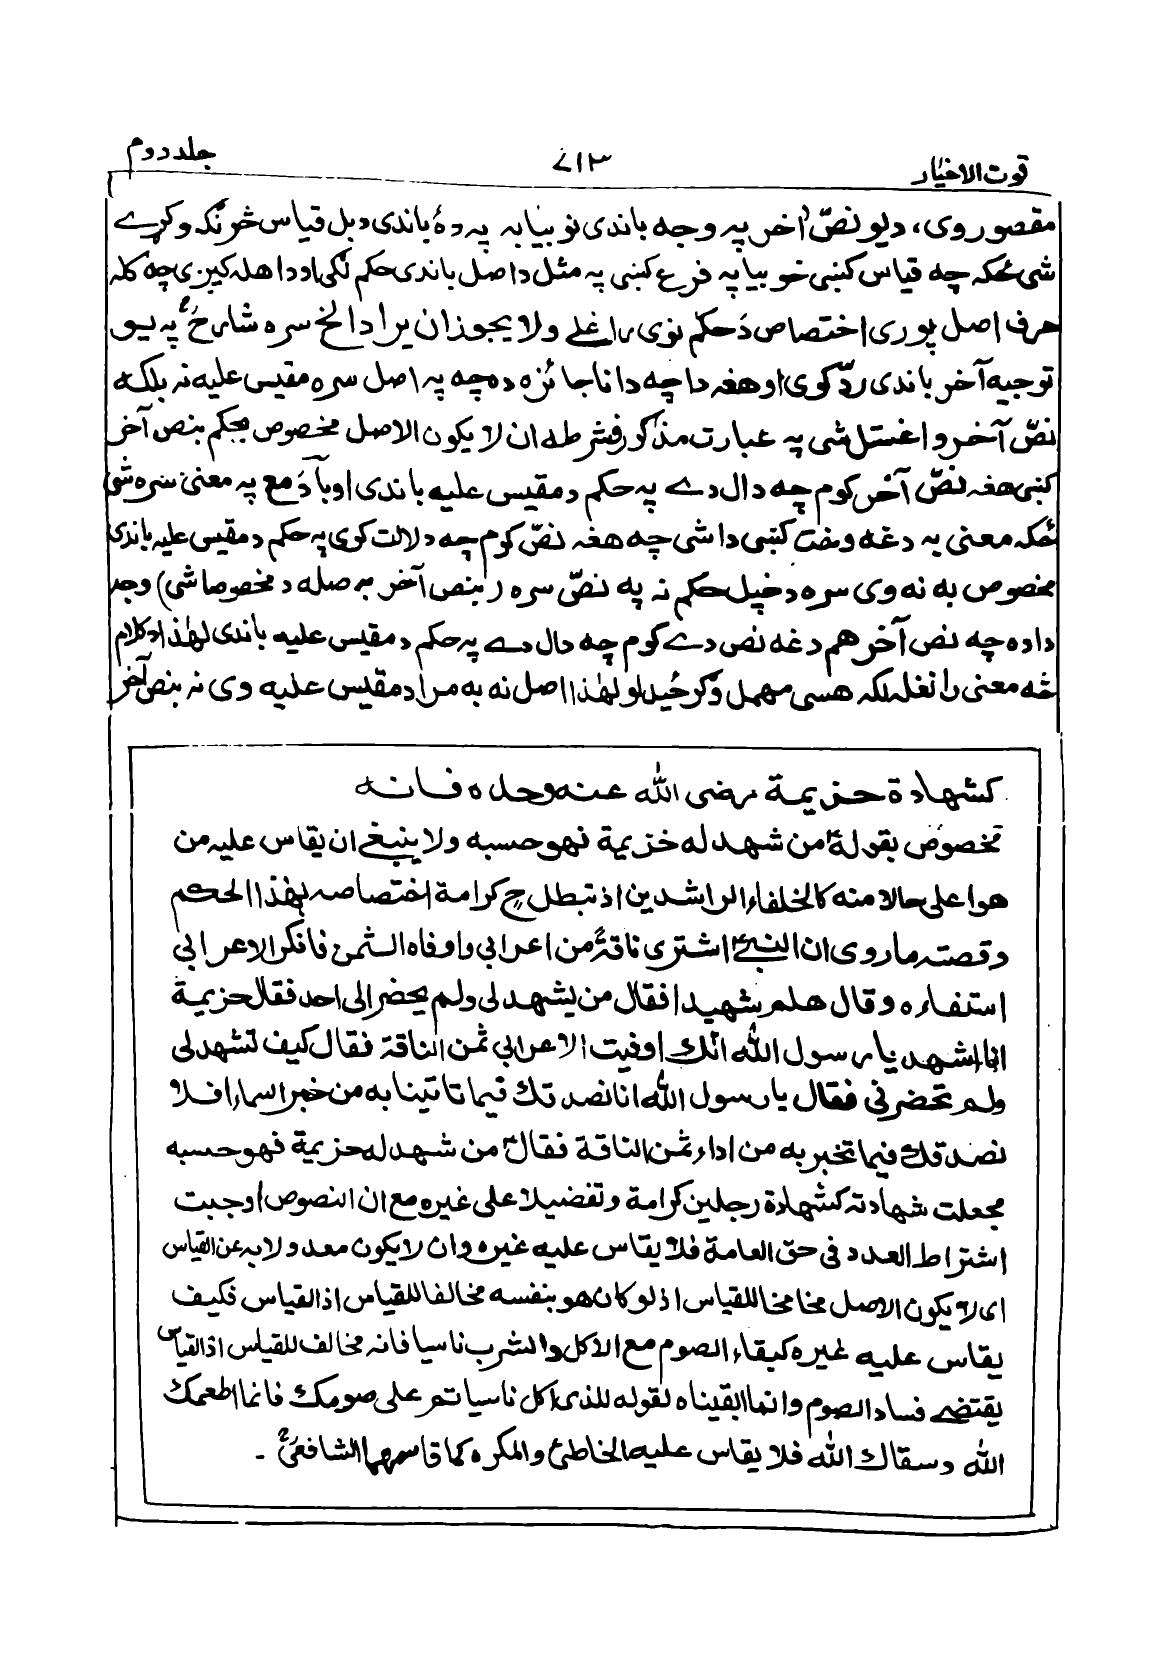 قوت الاخیار
۷۱۳
جلد دوم
مقصور وی، د یو نصّ اٰخر په وجه باندی نو بیا به په دهٔ باندی د بل قیاس څونګه وکړے
شی ځکه چه قیاس کښی خو بیا په فرع کښی په مثل د اصل باندی حکم لګی او دا هله کیږی چه کله
صرف اصل پوری اختصاص دَ حکم نوی راغلے ولا یجوز ان یراد الخ سره شارحؒ په یو
توجیه آخر باندی ردّ کوی او هغه دا چه دا ناجائزه ده چه په اصل سره مقیس علیه نه بلکه
نصّ آخر واغستل شی په عبارت مذکور فشرطه ان لا یکون الاصل مخصوص بحکم بنص آخر
کښی هغه نصّ آخر کوم چه دال دے په حکم د مقیس علیه باندی او بآ دَ مع په معنی سره شی
ځکه معنی به دغه وخت کښی دا شی چه هغه نصّ کوم چه دلالت کوی په حکم د مقیس علیه باندی
مخصوص به نه وی سره د خپل حکم نه په نصّ سره (بنص آخر به صله د مخصوصا شی) وجه
دا ده چه نص آخر هم دغه نص دے کوم چه دال دے په حکم د مقیس علیه باندی لهٰذا د کلام
څه معنی را نغله بلکه هسی مهمل وګرځید او لهٰذا اصل نه به مراد مقیس علیه وی نه بنص آخر
کشهادة حزیمة رضی الله عنه وحده فانه
مخصوص بقولهؑ من شهد له خزیمة فهو حسبه ولا ینبغی ان یقاس علیه من
هوا علی حالا منه کالخلفاء الراشدین اذ تبطل ح کرامة اختصاصه بهٰذا الحکم
وقصته ما روی ان النبیؑ اشتری ناقةً من اعرابی واوفاه الثمن فانکر الاعرابی
استفاءه وقال هلم شهیدا فقال من یشهد لی ولم یحضر الی احد فقال حزیمة
انا اشهد یا رسول الله انک اوفیت الاعرابی ثمن الناقة فقال کیف تشهد لی
ولم تحضر فی فقال یا رسول الله انا نصدقک فیما تاتینا به من خبر السماء افلا
نصدقک فیما تخبر به من اداء ثمن الناقة فقالؑ من شهد له حزیمة فهو حسبه
مجعلت شهادته کشهادة رجلین کرامة وتفضیلا علی غیره مع ان النصوص اوجبت
اشتراط العدد فی حق العامة فلا یقاس علیه غیره وان لا یکون معدولا به عن القیاس
ای لا یکون الاصل مخامخا للقیاس اذ لو کان هو بنفسه مخالفا للقیاس اذ القیاس فکیف
یقاس علیه غیره کبقاء الصوم مع الاکل والشرب ناسیا فانه مخالف للقیاس اذ القیاس
یقتضی فساد الصوم وانما ابقیناه لقوله للذی اکل ناسیا تم علی صومک فانما اطعمک
الله وسقاک الله فلا یقاس علیه الخاطئ والمکره کما قاسهما الشافعیؒ -